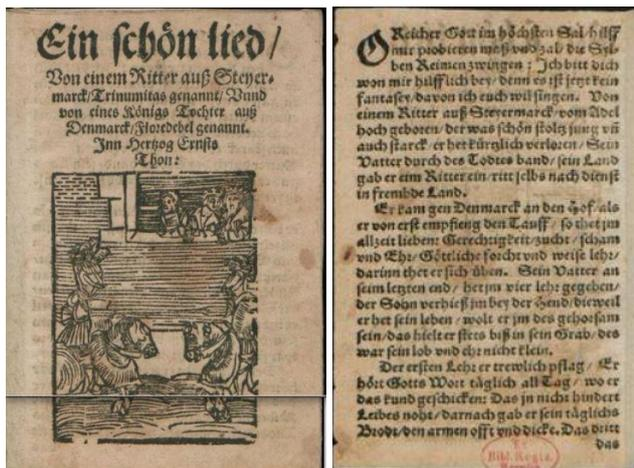 Ein schön lied/
Von einem Ritter auß Steyer-
marck/Trinumitas genannt/Vund
von eines Königs Tochter auß
Denmarck/Floredebel genannt.
Inn Hertzog Ernsts
Thon:
O Reicher Gott im höchsten Sal/hilff
mir probieren maß vnd zal/die Syl-
ben Reimen zwingen: Ich bitt dich
won mir hilfflich bey/denn es ist jetzt kein
fantasey/davon ich euch wil singen. Von
einem Ritter auß Steyermarck/vom Adel
hoch geboren/der was schön stoltz jung vñ
auch starck/er het kürtzlich verloren/Sein
Vatter durch des Todtes band/sein Land
gab er eim Ritter ein/ritt selbs nach dienst
in frembde Land.
Er kam gen Denmarck an den Hof/als
er von erst empfieng den Tauff/so thet jm
allzeit lieben: Gerechtigkeit/zucht/scham
vnd Ehr/Göttliche forcht vnd weise lehr/
darinn thet er sich üben. Sein Vatter an
seim letzten end/het jm vier lehr gegeben/
der Sohn verhieß jm bey der Hend/dieweil
er het sein leben/wolt er jm des gehorsam
sein/das hielt er stets biß in sein Grab/des
war sein lob vnd ehr nicht klein.
Der ersten Lehr er trewlich pflag/Er
hört Gotts Wort täglich all Tag/wo er
das kund geschicken: Das jn nicht hindert
Leibes noht/darnach gab er sein täglichs
Brodt/den armen offt vnd dicke. Das dritt
das
Bibl. Regia.